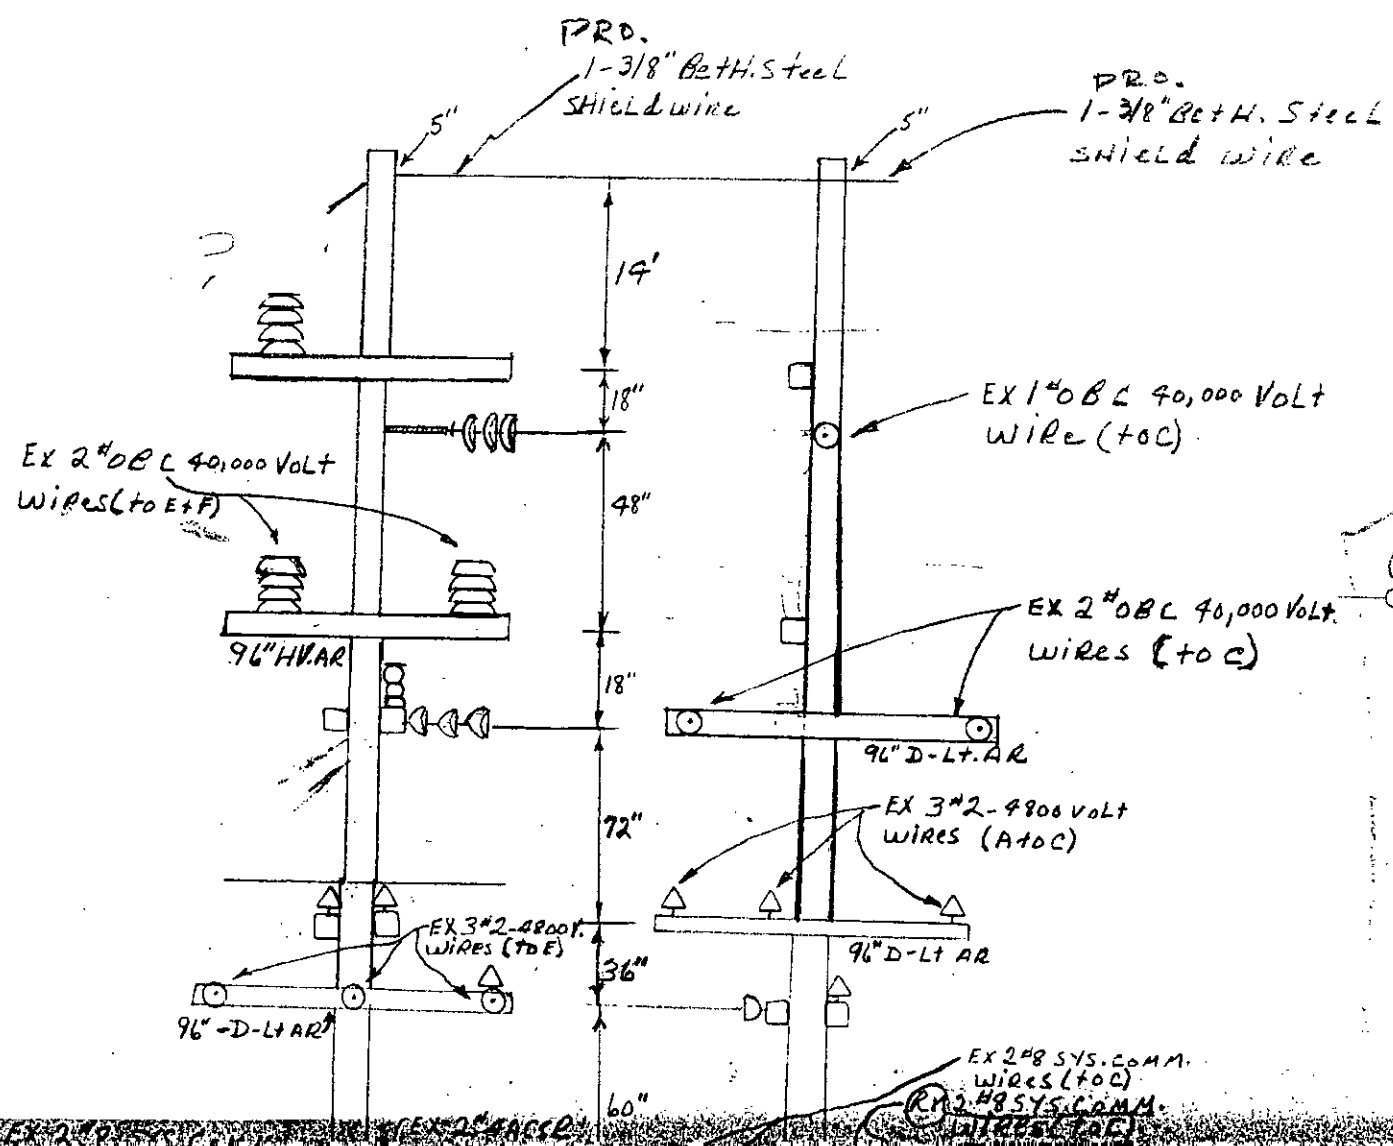 PRO.
1-3/8" BetH. Steel
SHield wire
PRO.
1-3/8" BetH. Steel
SHield wire
5"
5"
14'
18"
EX 1 #0 B C 40,000 VoLt
WiRe (to C)
EX 2 #0 B C 40,000 VoLt
WiRes (to E+F)
48"
EX 2 #0 B C 40,000 VoLt.
WiRes (to C)
96" HV. AR
18"
96" D-Lt. AR
72"
EX 3 #2-4800 VoLt
WiRes (A to C)
EX 3 #2-4800 V.
WiRes (to E)
96" D-Lt AR
36"
96" -D-Lt AR
EX 2 #8 SYS. COMM.
WiRes (to C)
60"
2 #8 SYS. COMM.
WIRES (to E)